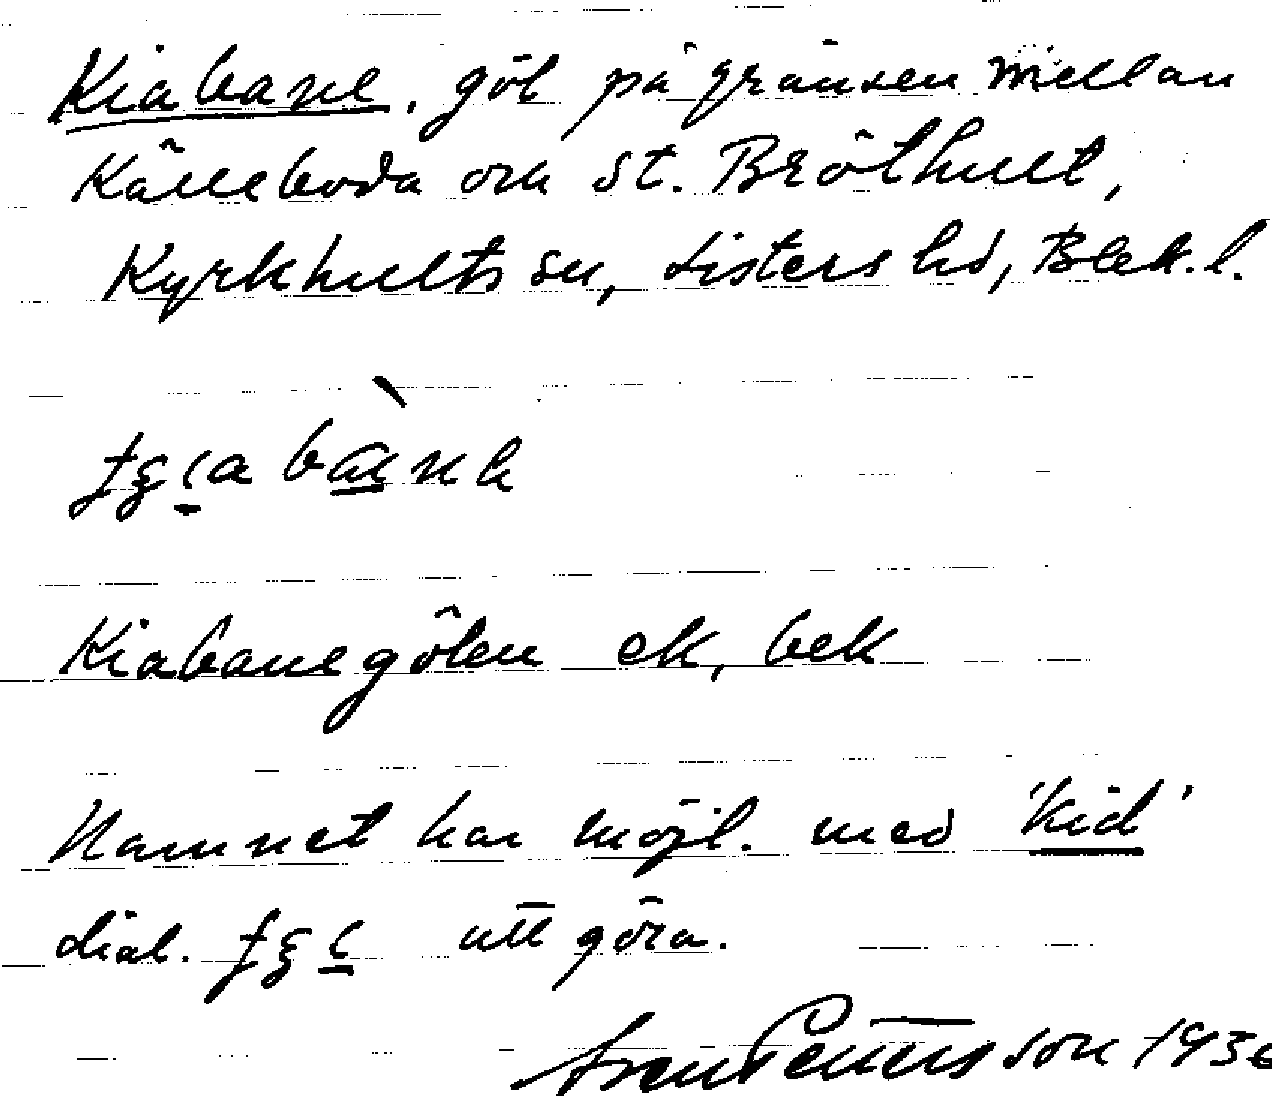 Kiabane, göl på gränsen mellan
Källeboda och St. Bröthult,
Kyrkhults sn, Listers hd, Blek. l.
Kiabanegölen ek, bek
Namnet har möjl. med 'kid'
dial. att göra.
Sven Pettersson 1936